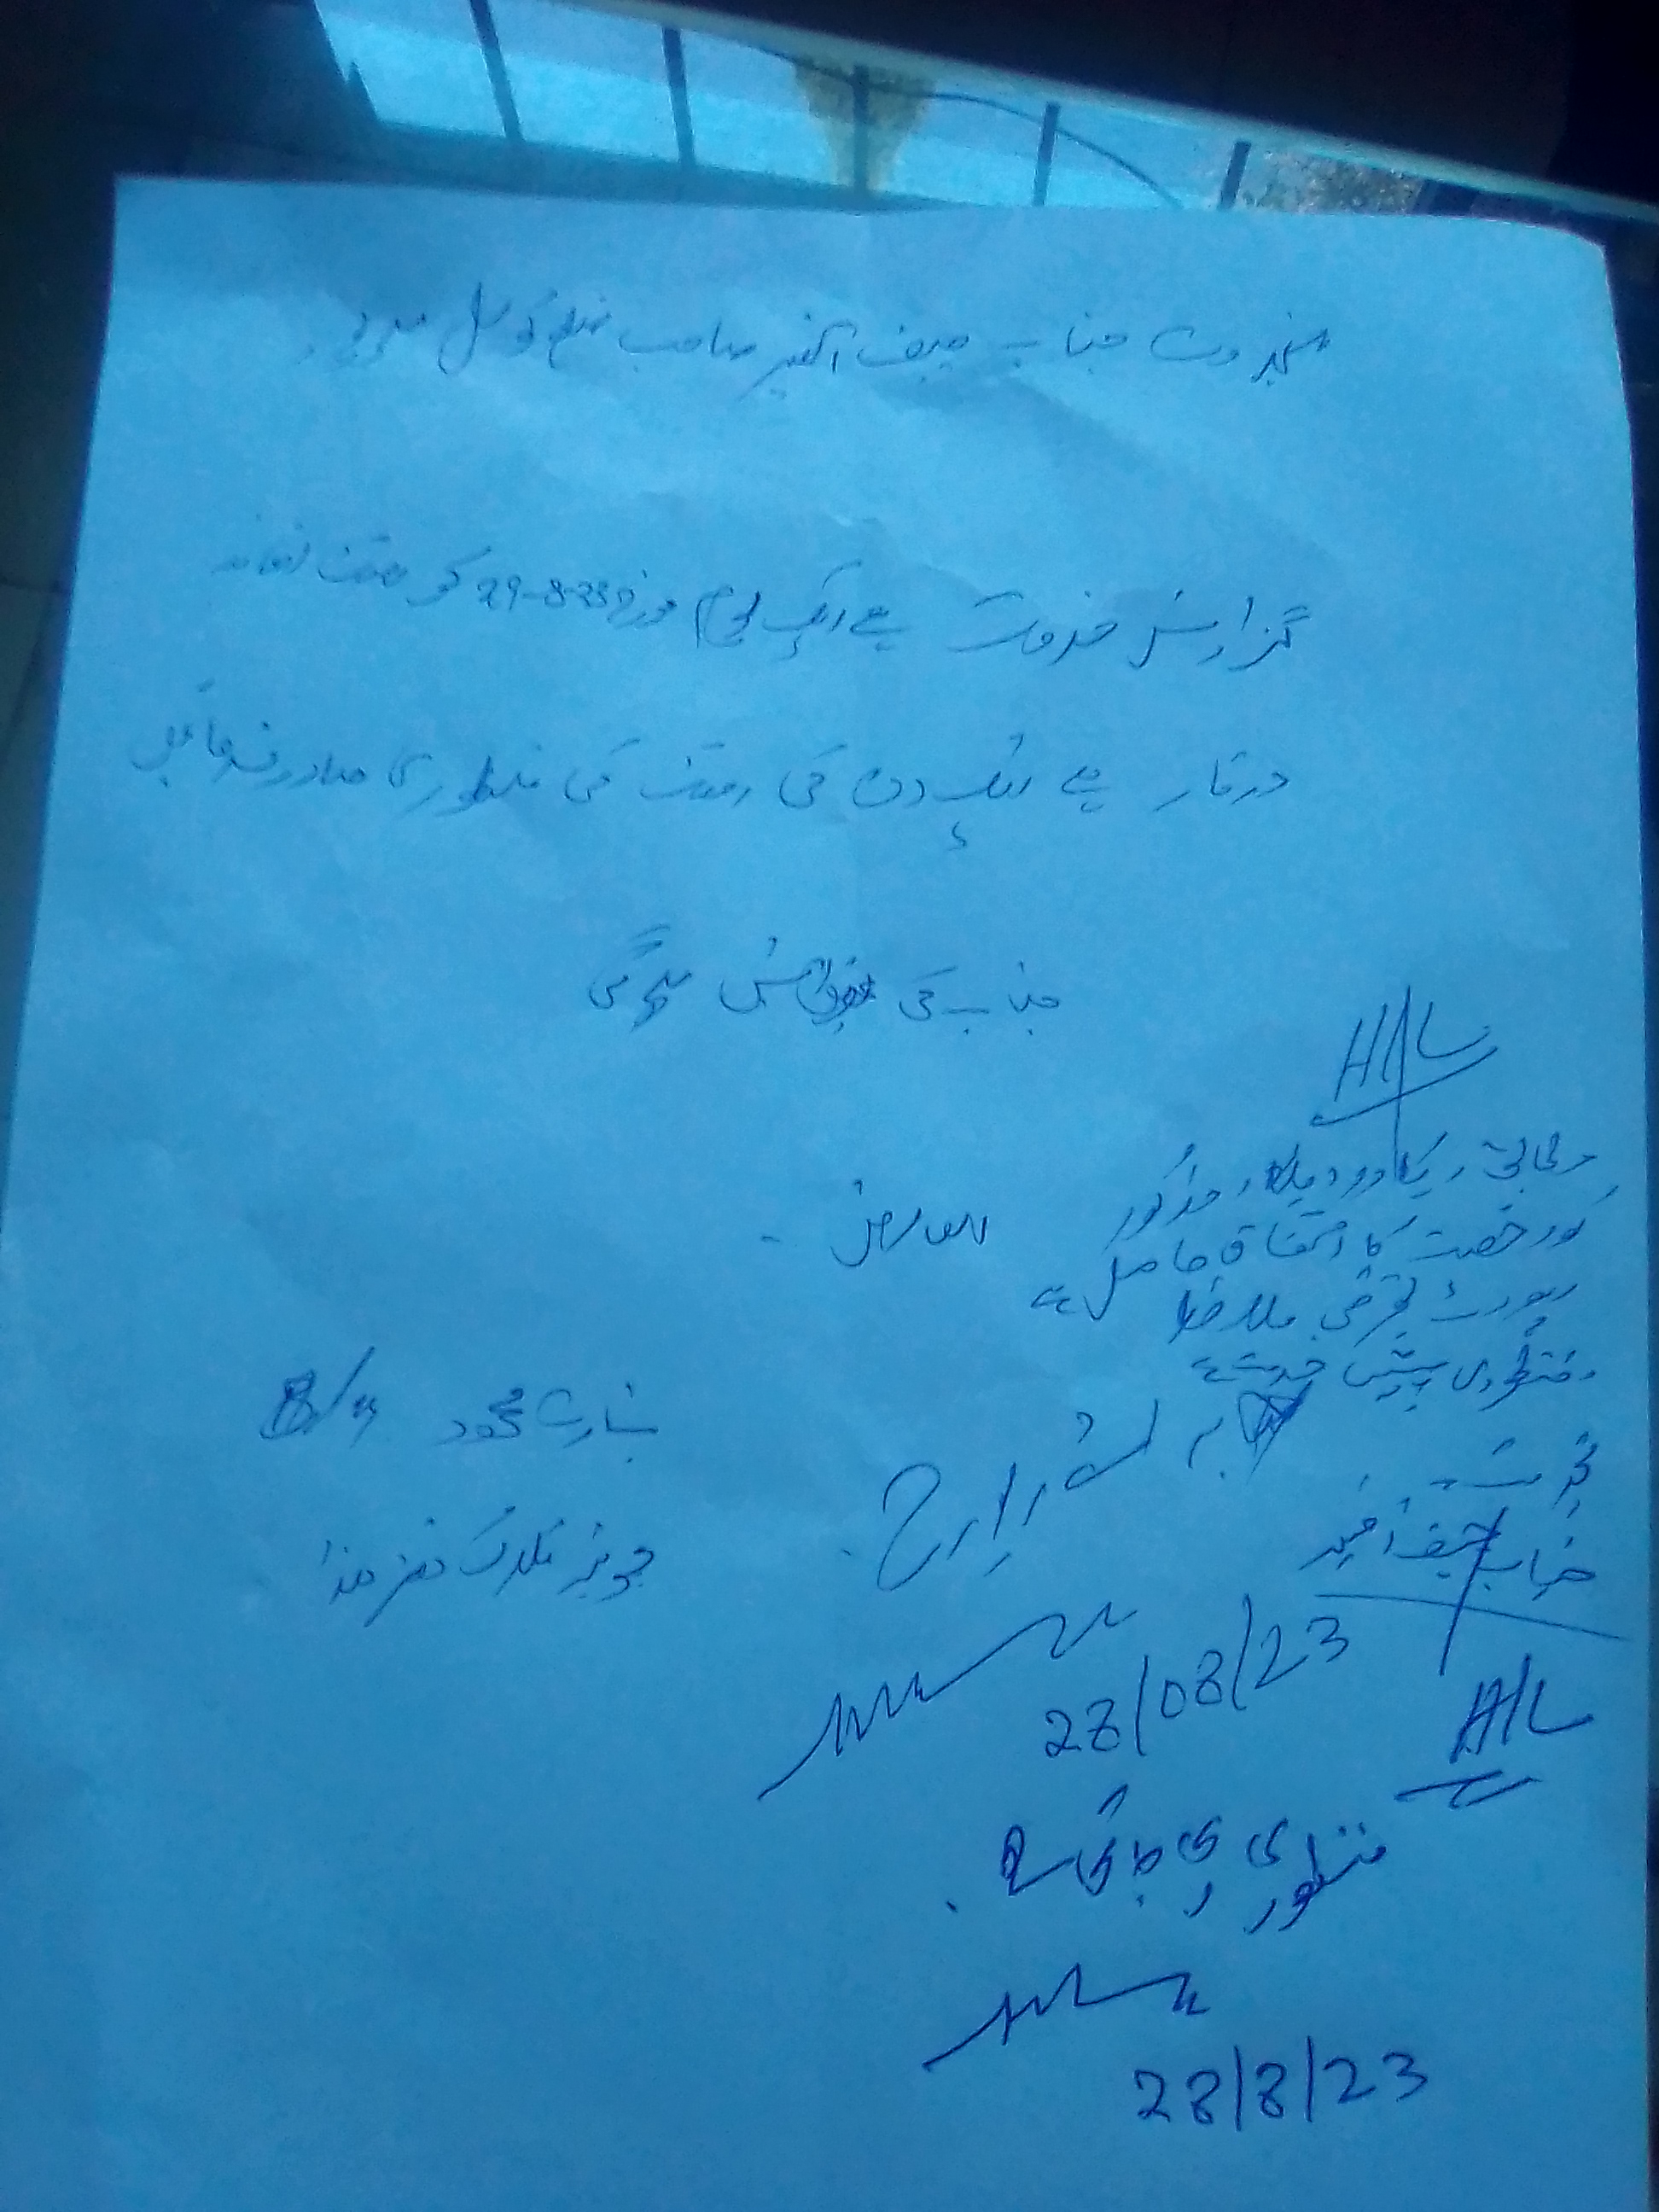 بخدمت جناب چیف آفیسر صاحب ضلع کونسل
گزارش خدمت ہے ایک یوم مورخہ 29-8-23 کو رخصت اتفاقیہ
درکار ہے ایک دن کی رخصت کی منظوری صادر فرمائی
جناب کی نوازش ہوگی
العارض
بشارت محمود
جونیئر کلرک دفتر ھذا
مطابق ریکارڈ مذکور
کو رخصت کا استحقاق حاصل ہے
رپورٹ بغرض ملاحظہ
و منظوری پیش خدمت ہے
بخدمت
جناب چیف آفیسر
28/08/23
منظوری دی جاتی ہے
28/8/23